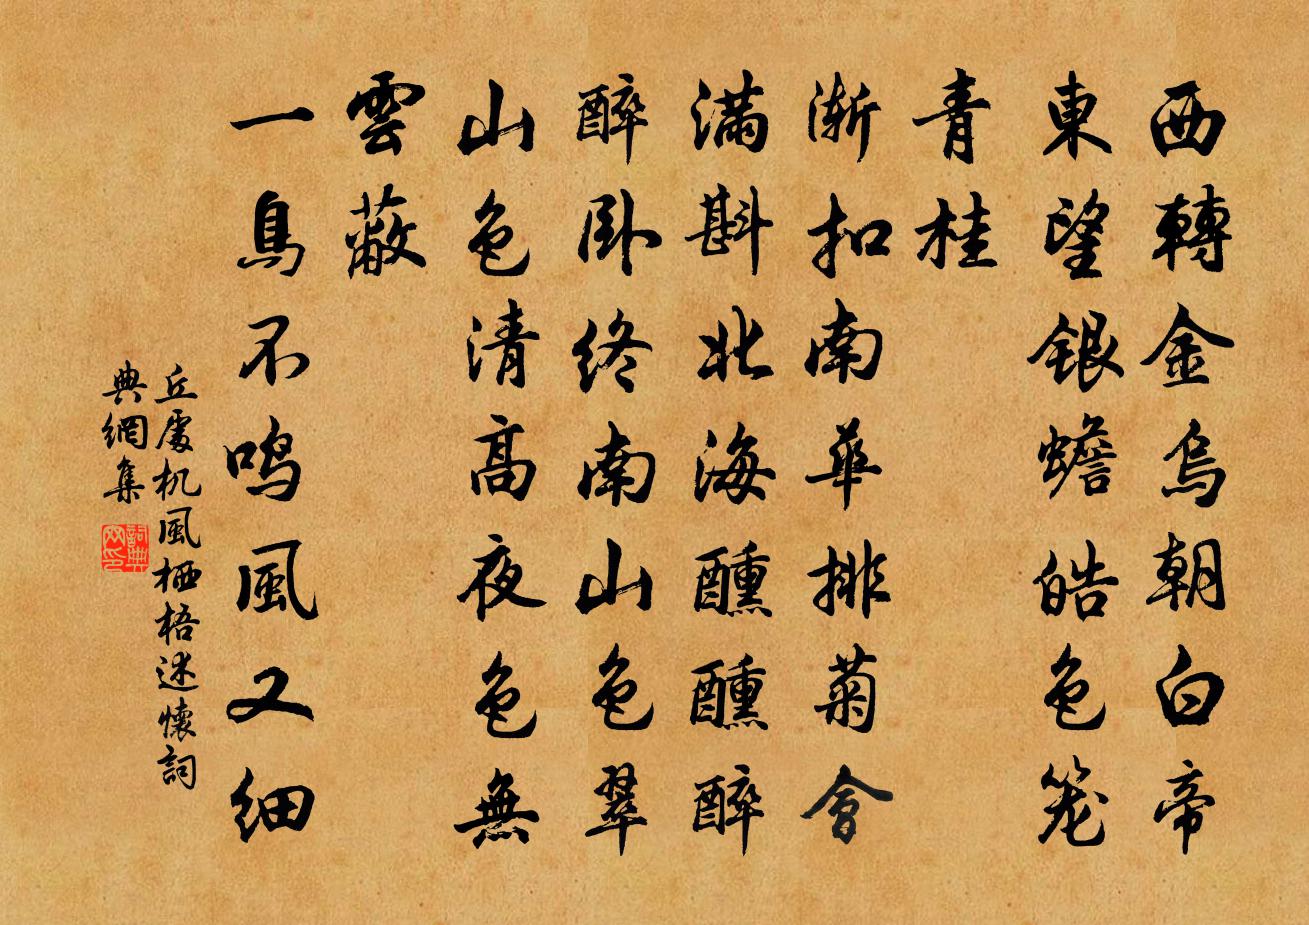 西轉金烏朝白帝
東望銀蟾皓色笼
青桂
渐扣南華排菊會
滿斟北海醺醺醉
醉卧终南山色翠
山色清高夜色無
雲蔽
一鳥不鸣風又细
丘處机風栖梧述懷詞
典網集
詞典网印